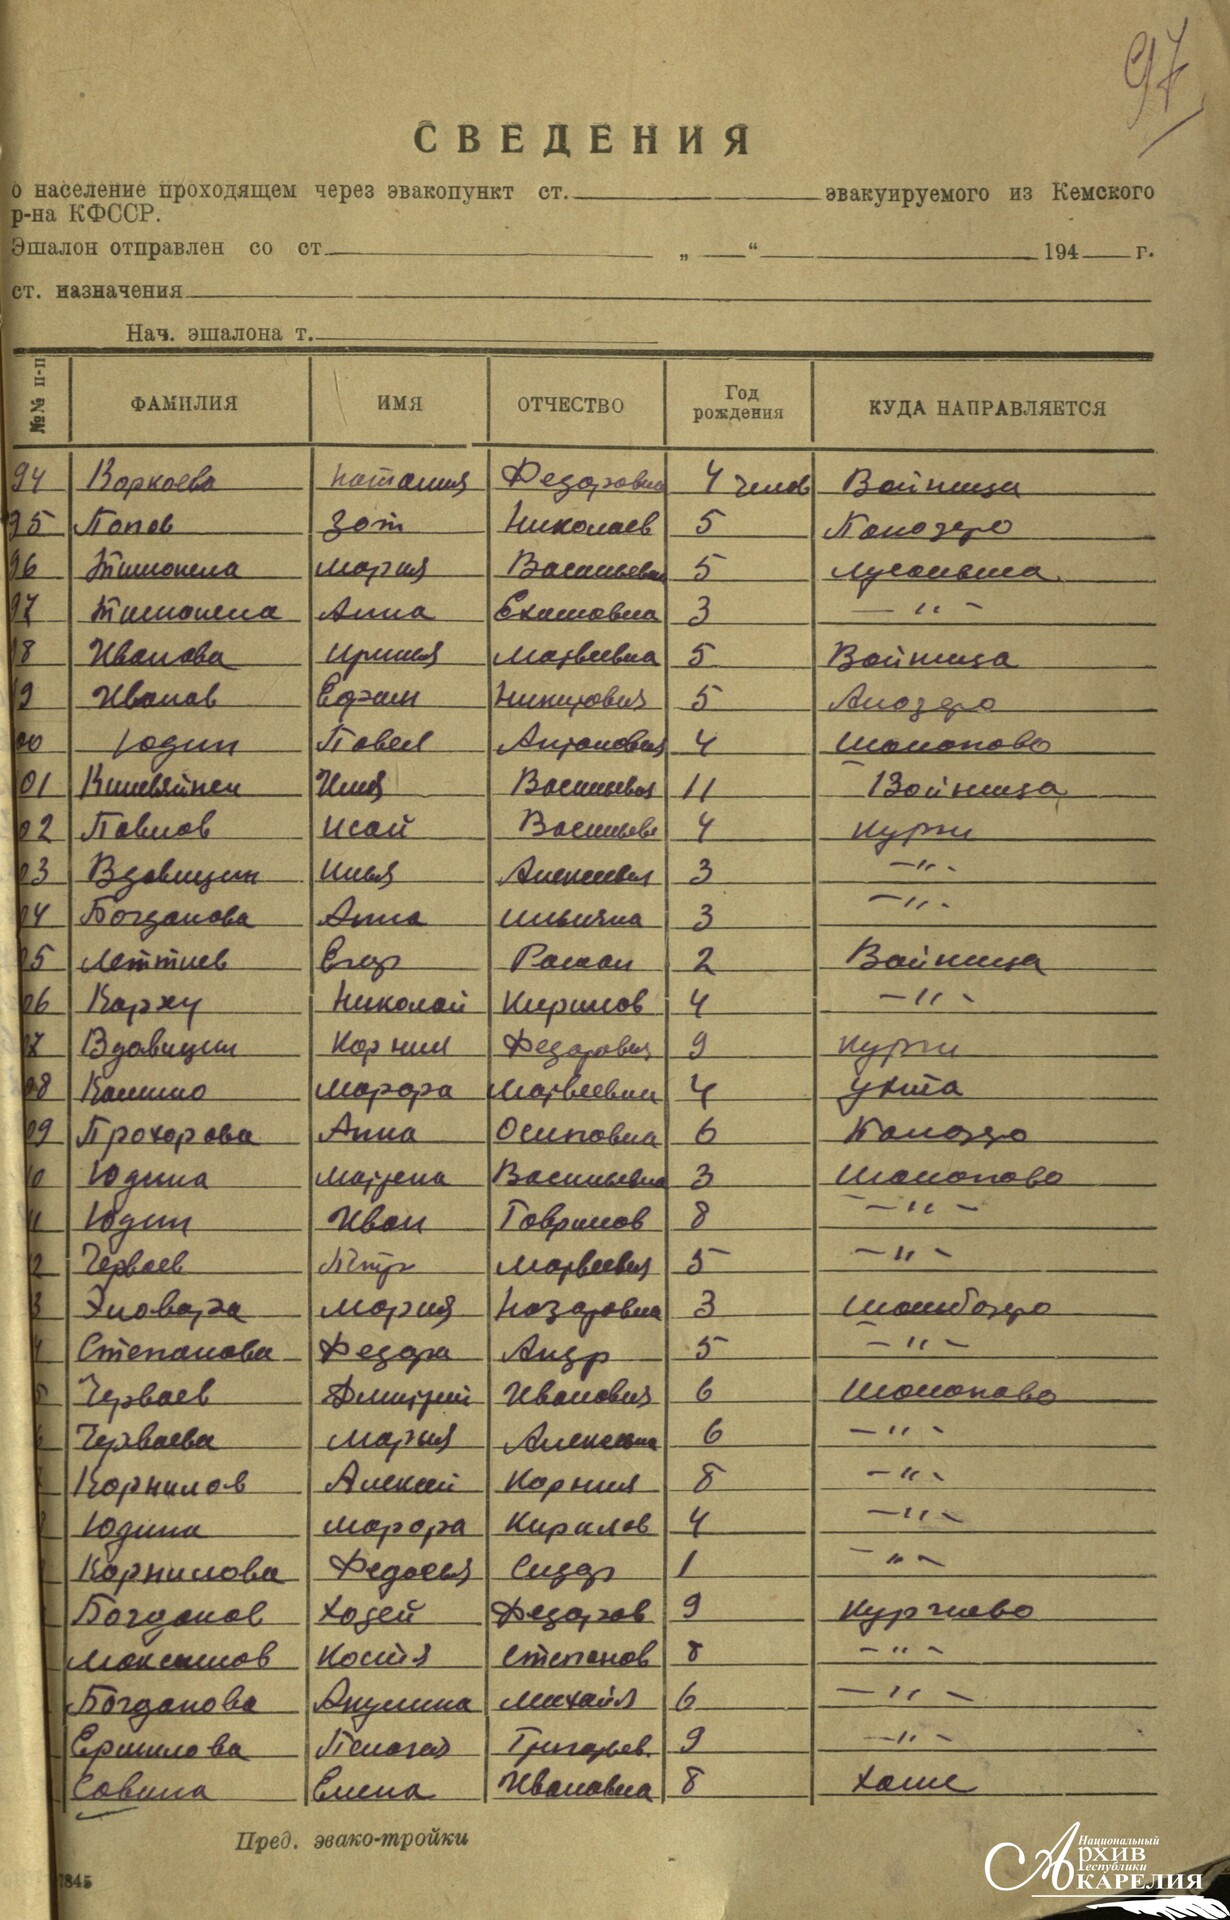 97
СВЕДЕНИЯ
о население проходящем через эвакопункт ст. эвакуируемого из Кемского
р-на КФССР.
Эшалон отправлен со ст „ — “ 194 г.
ст. назначения
Нач. эшалона т.
№№ п-п ФАМИЛИЯ ИМЯ ОТЧЕСТВО Год рождения КУДА НАПРАВЛЯЕТСЯ
94 Коркоева Наталия Федоровна 4 челов Войница
95 Попов Зот Николаев 5 Панозеро
96 Мария Васильевна 5
97 Анна 3 — " -
98 Иванова Иринья Матвеевна 5 Войница
9 Иванов Ефим Никитович 5
00 Юдин Павел Антонович 4 Шомопово
01 Илья Васильевич 11 Войница
02 Павлов Исай Васильев 4 Курги
03 Вдовицин Илья Алексеевич 3 — " -
04 Богданова Анна Ильична 3 — " -
05 Леттиев Егор Роман 2 Войница
06 Карху Николай Кирилов 4 — " -
07 Вдовицин Корнил Федорович 9 Курги
08 Марфа Матвеевна 4 Ухта
09 Прохорова Анна Осиповна 6
10 Юдина Матрена Васильевна 3 Шомопово
11 Юдин Иван Гаврилов 8 — " -
2 Черваев Пётр Матвеевич 5 — " -
3 Мария Назаровна 3
4 Степанова Федора Андр 5 — " -
5 Черваев Дмитрий Иванович 6 Шомопово
6 Черваева Марья 6 — " -
Корнилов Алексей Корнил 8 — " -
Юдина Марфа Кирилов 4 — " -
Корнилова Федосья Сидор 1 — " -
Богданов Ходей Федоров 9 Кургиево
Максимов Костя Степанов 8 — " -
Богданова Акулина Михайл 6 — " -
Ермилова Пелагея Григорьев. 9 — " -
Савина Елена Ивановна 8
Пред. эвако-тройки
7845
Национальный
АРХИВ
Республики
КАРЕЛИЯ